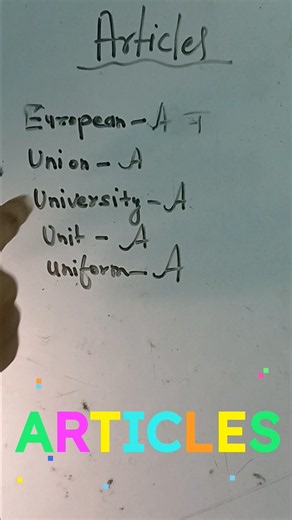 Articles
European - A
Union - A
University - A
Unit - A
uniform - A
ARTICLES